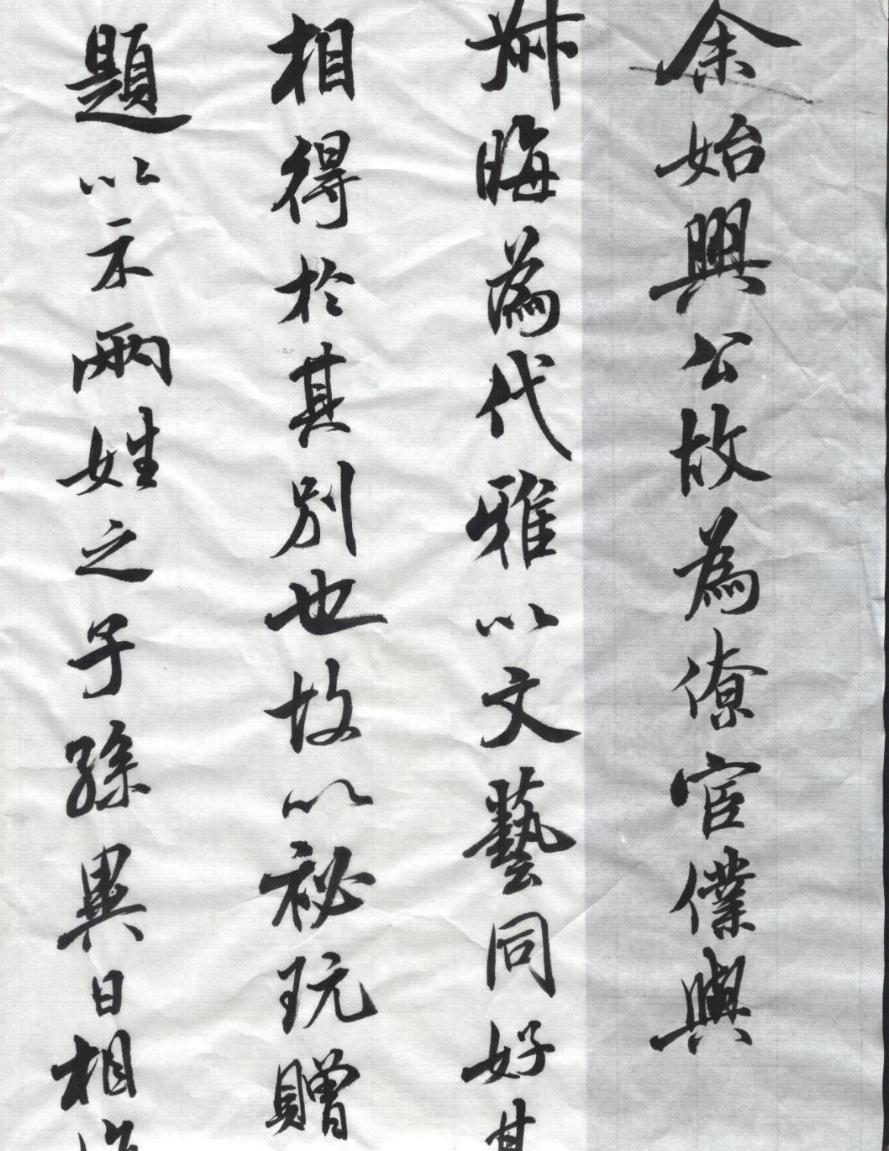 余始興公故為僚宦僕與
叔晦為代雅以文藝同好
相得於其別也故以祕玩贈
題以示兩姓之子孫異日相